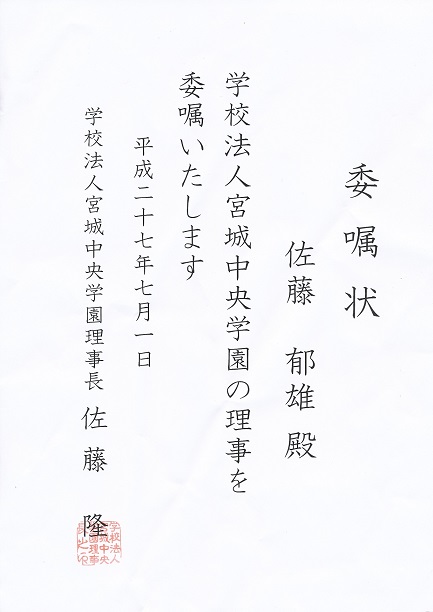 委嘱状
佐藤 郁雄 殿
学校法人宮城中央学園の理事を
委嘱いたします
平成二十七年七月一日
学校法人宮城中央学園理事長 佐藤 隆
学校法人
宮城中央
学園理事
長之印